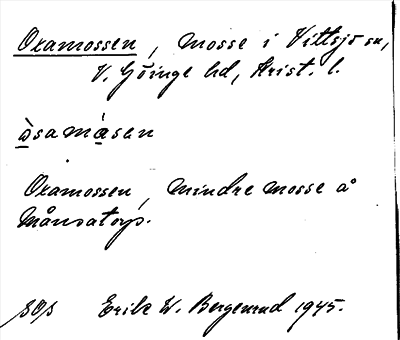 Oxamossen, mosse i Vittsjö sn,
V. Göinge hd, Krist. l.
ɷ̀samásen
Oxamossen, mindre mosse å
Månsatorp.
SOs Erik W. Bergenrud 1945.